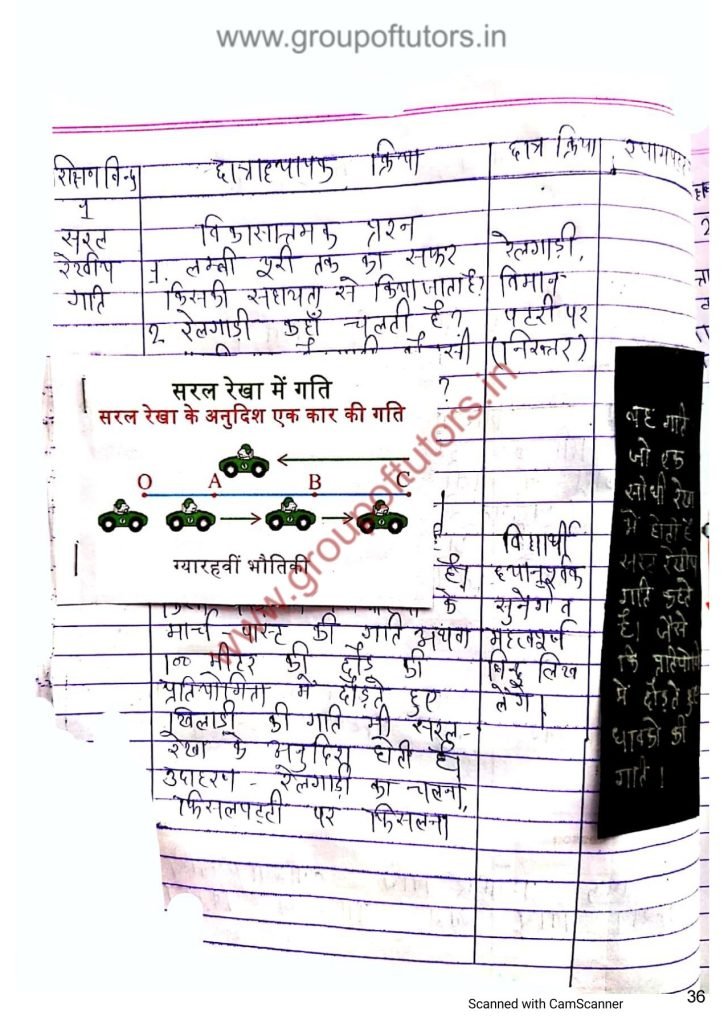 www.groupoftutors.in
शिक्षण बिन्दु छात्राध्यापक क्रिया छात्र क्रिया श्यामपट्ट
1
सरल
रेखीय
गति
विकासात्मक प्रश्न
1. लम्बी दूरी तक का सफर
किसकी सहायता से किया जाता है?
2 रेलगाड़ी कहाँ चलती है?
?
सरल रेखा में गति
सरल रेखा के अनुदिश एक कार की गति
O A B C
ग्यारहवीं भौतिकी
है।
के
मार्च पास्ट की गति अथवा
100 मीटर की दौड़ की
प्रतियोगिता में दौड़ते हुए
खिलाड़ी की गति भी सरल-
रेखा के अनुदिश होती है।
उदाहरण - रेलगाड़ी का चलना,
फिसलपट्टी पर फिसलना
रेलगाड़ी,
विमान
पटरी पर
(निरुत्तर)
विद्यार्थी
ध्यानपूर्वक
सुनेंगे व
महत्वपूर्ण
बिन्दु लिख
लेंगे।
वह गति
जो एक
सीधी रेखा
में होती है
सरल रेखीय
गति कहते
है। जैसे
कि प्रतियोगिता
में दौड़ते हुए
धावकों की
गति।
www.groupoftutors.in
Scanned with CamScanner
36